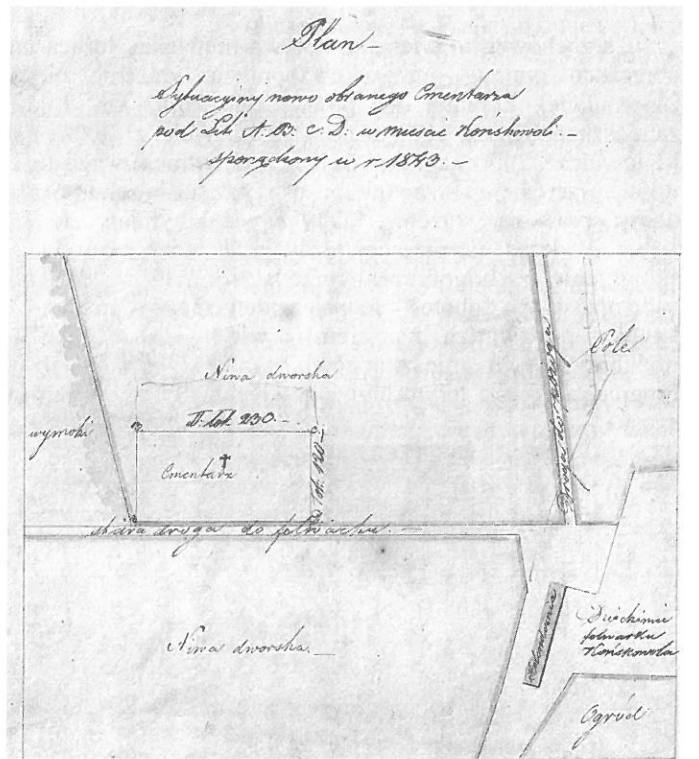 Plan
Sytuacyjny nowo obranego Cmentarza
pod Lit A. B. C. D. w mieście Końskowoli. –
sporządzony w r 1843. –
Niwa dworska
Pole
wymoki
D. łok. 230. –
Cmentarz
łok. 120
Droga do
stara droga do folwarku. –
Niwa dworska. –
folwarku
Końskowola
Ogród